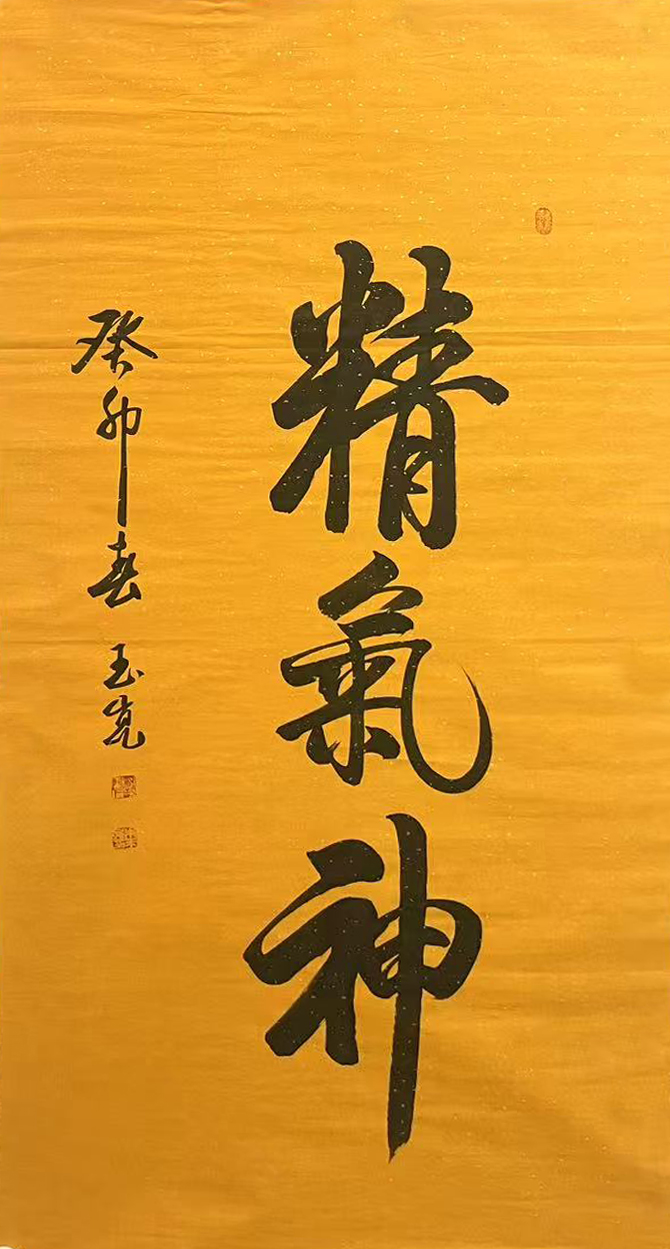 精氣神
癸卯春 玉克